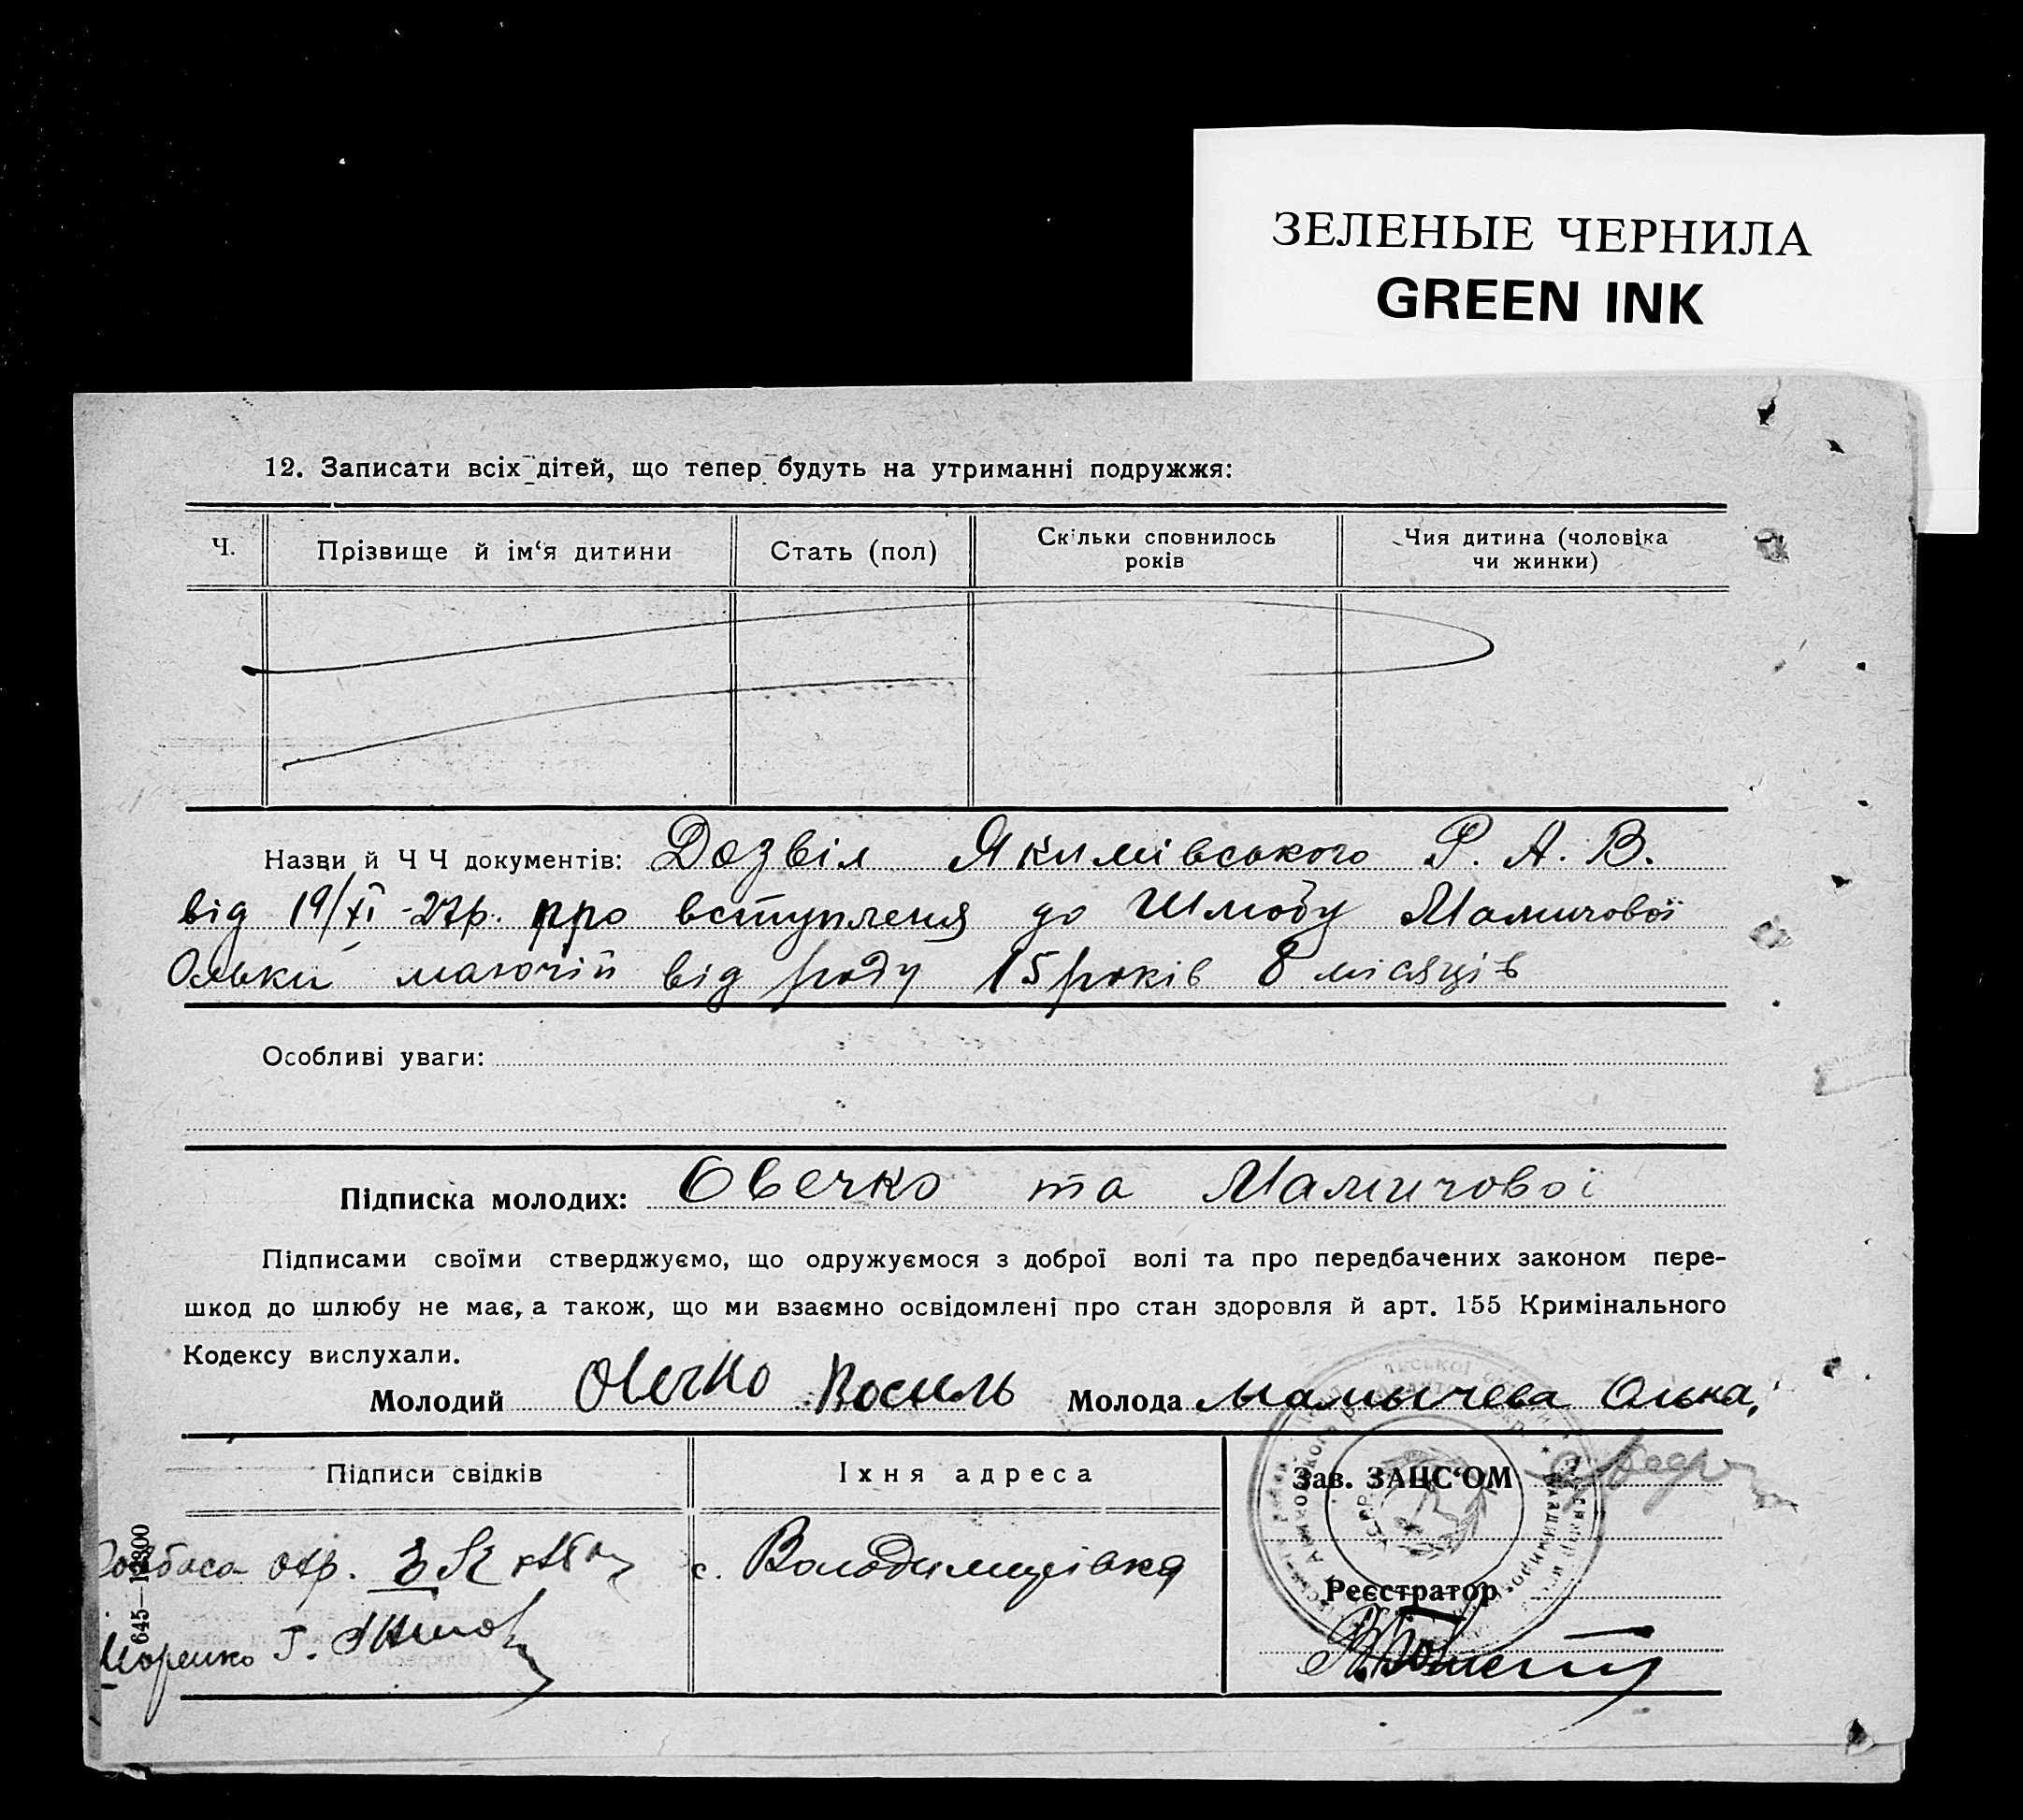 ЗЕЛЕНЫЕ ЧЕРНИЛА
GREEN INK
12. Записати всіх дітей, що тепер будуть на утриманні подружжя:
Ч.
Прізвище й ім‘я дитини
Стать (пол)
Скільки сповнилось
років
Чия дитина (чоловіка
чи жинки)
Назви й Ч Ч документів: Дозвіл Якимівського Р. А. В.
від 19/XI-27р. про вступленя до Шлюбу Мамичової
Ольки маючій від роду 15 років 8 місяців
Особливі уваги:
Підписка молодих: Овечко та Мамичової
Підписами своїми стверджуємо, що одружуємося з доброї волі та про передбачених законом пере-
шкод до шлюбу не має, а також, що ми взаємно освідомлені про стан здоровля й арт. 155 Кримінального
Кодексу вислухали.
Молодий Овечко Василь Молода Мамычева Олька,
Підписи свідків
Їхня адреса
Зав. ЗАЦС‘ОМ
с. Володимирівка
Реєстратор
645—1